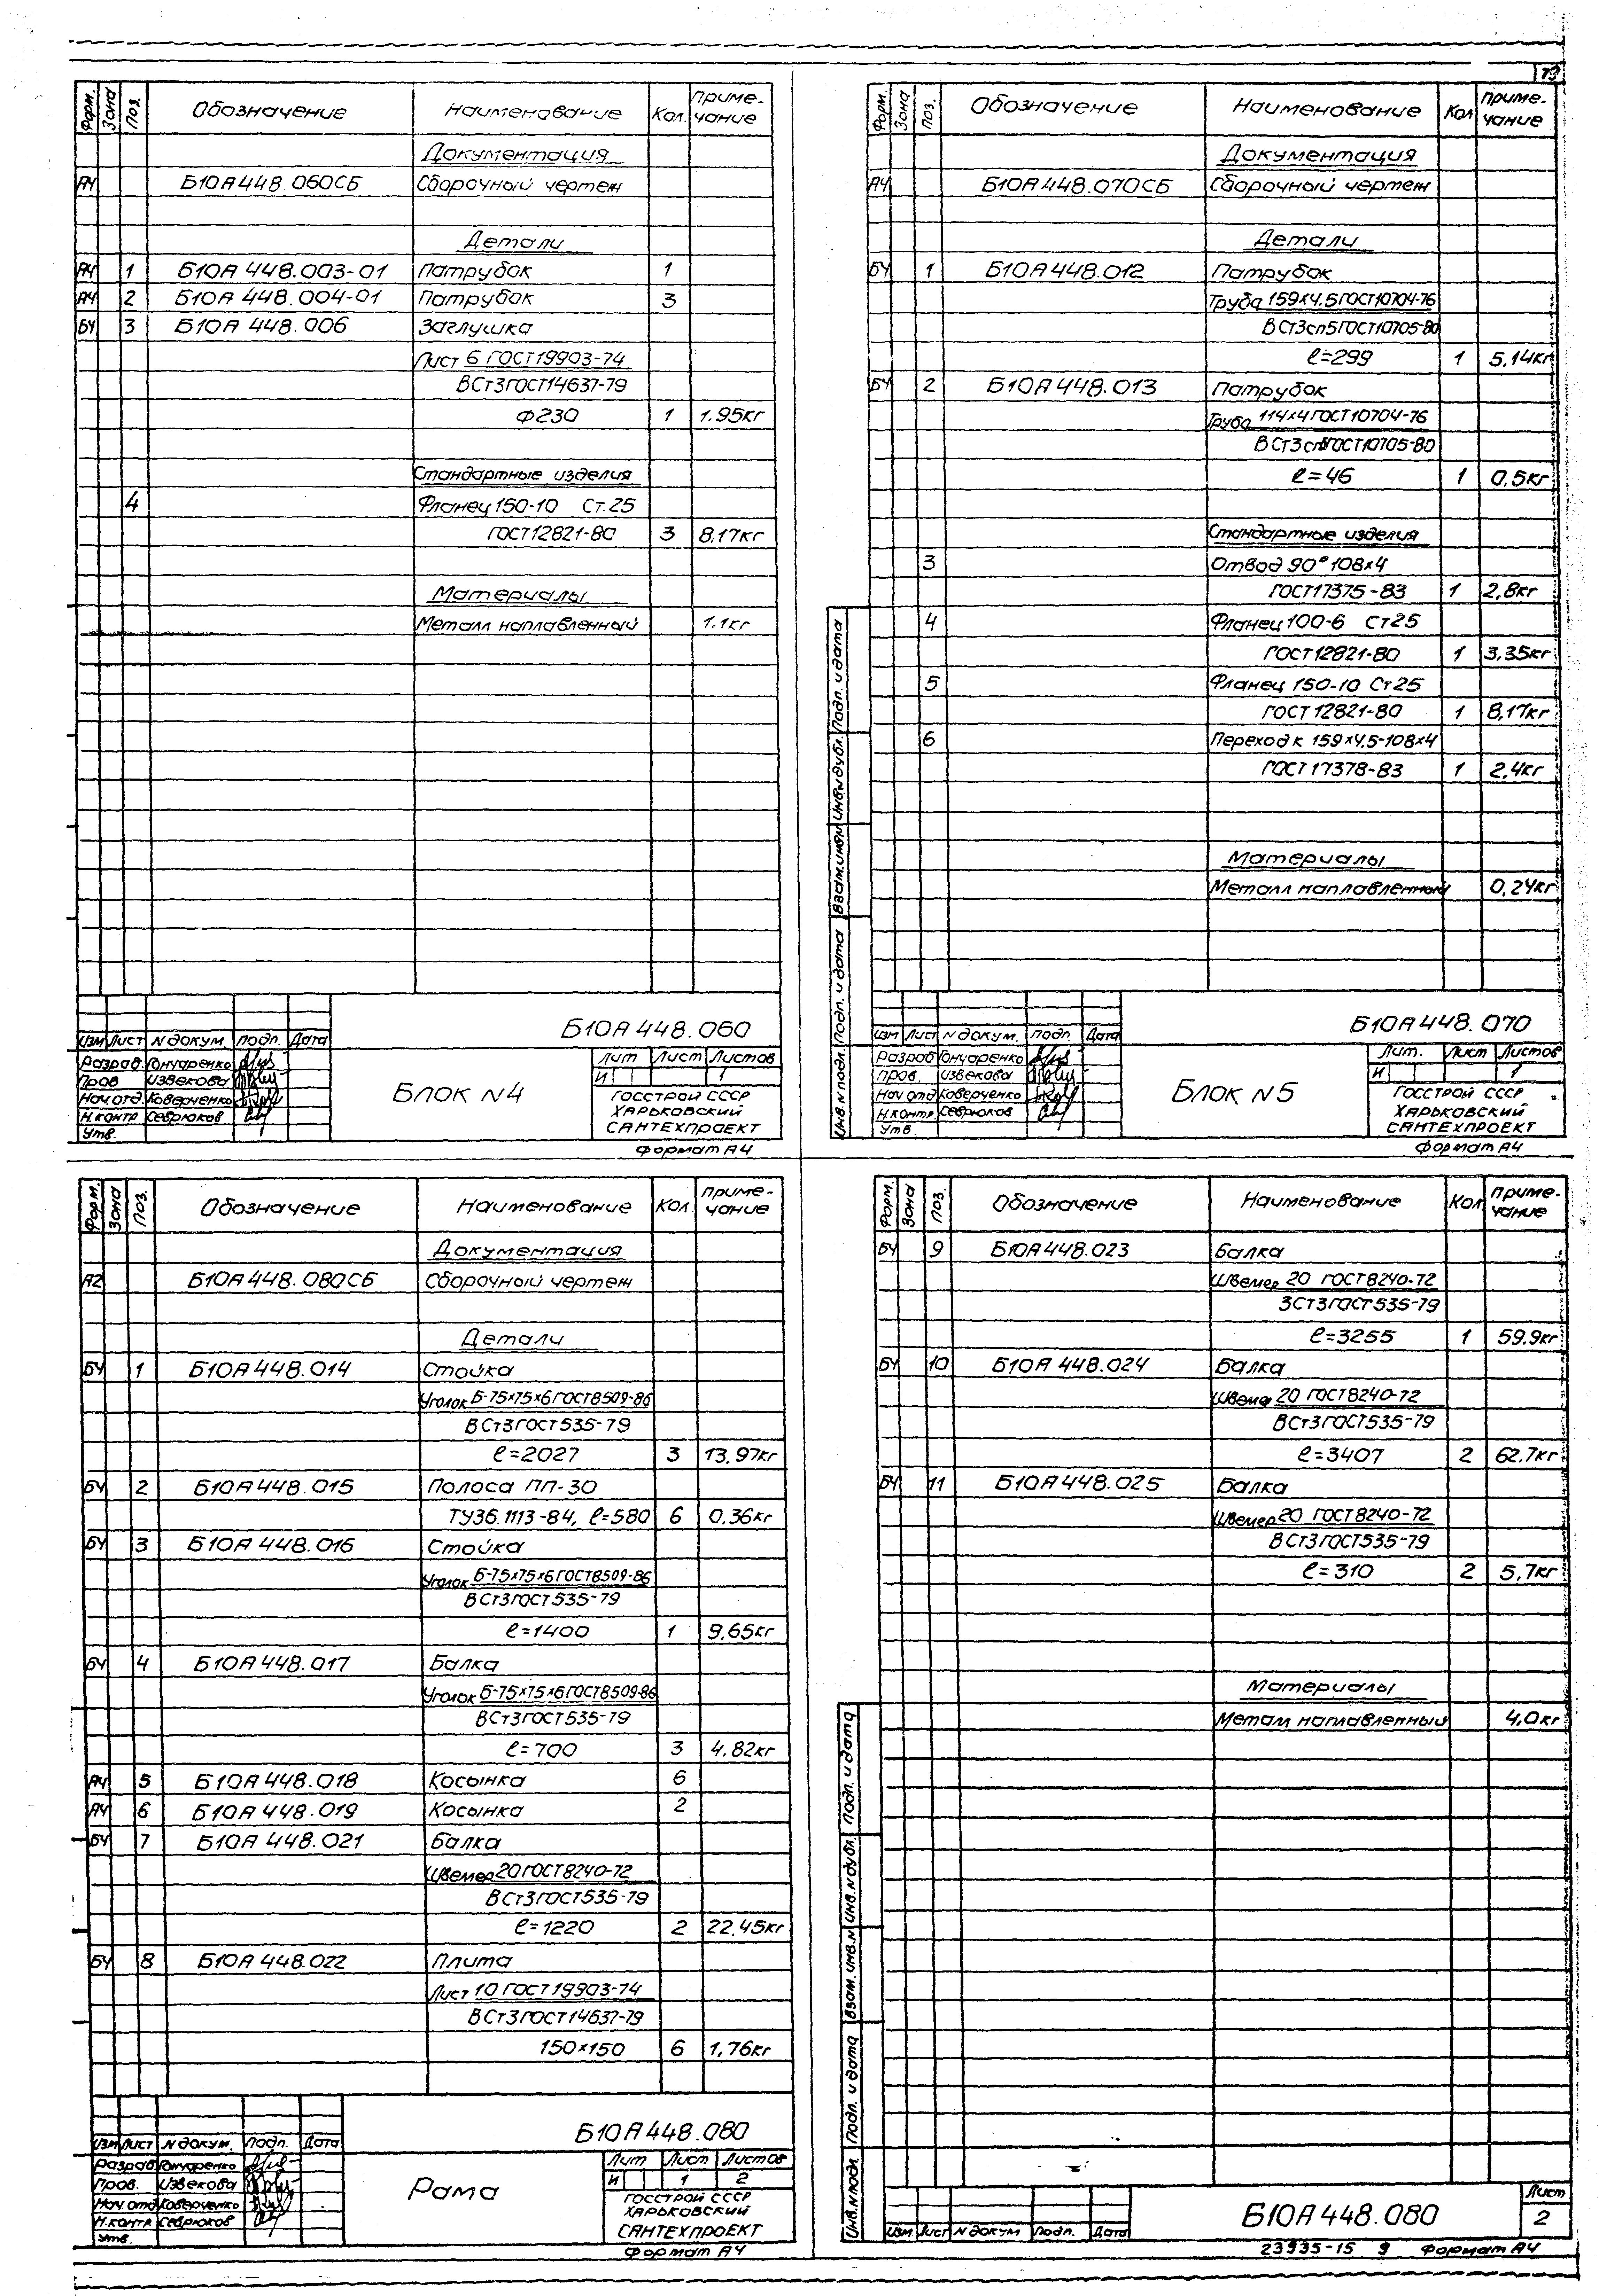 19
Форм. Зона Поз. Обозначение Наименование Кол. Приме-чание
Документация
А4 Б10А448.060СБ Сборочный чертеж
Детали
А4 1 Б10А448.003-01 Патрубок 1
А4 2 Б10А448.004-01 Патрубок 3
БЧ 3 Б10А448.006 Заглушка
Лист 6 ГОСТ19903-74
ВСт3ГОСТ14637-79
Ф230 1 1.95кг
Стандартные изделия
4 Фланец 150-10 Ст.25
ГОСТ12821-80 3 8,17кг
Материалы
Металл наплавленный 1.1кг
Б10А448.060
Изм Лист N докум. Подп. Дата
Разраб. Гончаренко
Пров Извекова
Нач.отд. Коверченко
Н.контр Севрюков
Утв.
Блок N4
Лит Лист Листов
И 1
ГОССТРОЙ СССР
ХАРЬКОВСКИЙ
САНТЕХПРОЕКТ
Формат А4
Форм. Зона Поз. Обозначение Наименование Кол Приме-чание
Документация
А4 Б10А448.070СБ Сборочный чертеж
Детали
БЧ 1 Б10А448.012 Патрубок
Труба 159х4.5ГОСТ10704-76
ВСт3сп5ГОСТ10705-80
ℓ=299 1 5,14кг
БЧ 2 Б10А448.013 Патрубок
Труба 114х4ГОСТ10704-76
ВСт3сп5ГОСТ10705-80
ℓ=46 1 0,5кг
Стандартные изделия
3 Отвод 90° 108х4
ГОСТ17375-83 1 2,8кг
4 Фланец 100-6 Ст25
ГОСТ12821-80 1 3,35кг
5 Фланец 150-10 Ст25
ГОСТ12821-80 1 8,17кг
6 Переход К 159х4,5-108х4
ГОСТ17378-83 1 2,4кг
Материалы
Металл наплавленный 0,24кг
Инв.N подл. Подп. и дата Взам.инв.N Инв.N дубл. Подп. и дата
Б10А448.070
Изм Лист N докум. Подп. Дата
Разраб Гончаренко
Пров. Извекова
Нач.отд Коверченко
Н.контр Севрюков
Утв.
Блок N5
Лит. Лист Листов
И 1
ГОССТРОЙ СССР
ХАРЬКОВСКИЙ
САНТЕХПРОЕКТ
Формат А4
Форм. Зона Поз. Обозначение Наименование Кол. Приме-чание
Документация
А2 Б10А448.080СБ Сборочный чертеж
Детали
БЧ 1 Б10А448.014 Стойка
Уголок Б-75х75х6ГОСТ8509-86
ВСт3ГОСТ535-79
ℓ=2027 3 13,97кг
БЧ 2 Б10А448.015 Полоса ПП-30
ТУ36.1113-84, ℓ=580 6 0,36кг
БЧ 3 Б10А448.016 Стойка
Уголок Б-75х75х6ГОСТ8509-86
ВСт3ГОСТ535-79
ℓ=1400 1 9,65кг
БЧ 4 Б10А448.017 Балка
Уголок Б-75х75х6ГОСТ8509-86
ВСт3ГОСТ535-79
ℓ=700 3 4.82кг
А4 5 Б10А448.018 Косынка 6
А4 6 Б10А448.019 Косынка 2
БЧ 7 Б10А448.021 Балка
Швеллер 20ГОСТ8240-72
ВСт3ГОСТ535-79
ℓ=1220 2 22,45кг
БЧ 8 Б10А448.022 Плита
Лист 10 ГОСТ19903-74
ВСт3ГОСТ14637-79
150х150 6 1,76кг
Б10А448.080
Изм Лист N докум. Подп. Дата
Разраб Гончаренко
Пров. Извекова
Нач.отд Коверченко
Н.контр Севрюков
Утв.
Рама
Лит Лист Листов
И 1 2
ГОССТРОЙ СССР
ХАРЬКОВСКИЙ
САНТЕХПРОЕКТ
Формат А4
Форм. Зона Поз. Обозначение Наименование Кол Приме-чание
БЧ 9 Б10А448.023 Балка
Швеллер 20 ГОСТ8240-72
3Ст3ГОСТ535-79
ℓ=3255 1 59.9кг
БЧ 10 Б10А448.024 Балка
Швелле 20 ГОСТ8240-72
ВСт3ГОСТ535-79
ℓ=3407 2 62,7кг
БЧ 11 Б10А448.025 Балка
Швеллер 20 ГОСТ8240-72
ВСт3ГОСТ535-79
ℓ=310 2 5,7кг
Материалы
Металл наплавленный 4,0кг
Инв.N подл. Подп. и дата Взам.инв.N Инв.N дубл. Подп. и дата
Изм Лист N докум Подп. Дата
Б10А448.080
Лист
2
23935-15 9 Формат А4